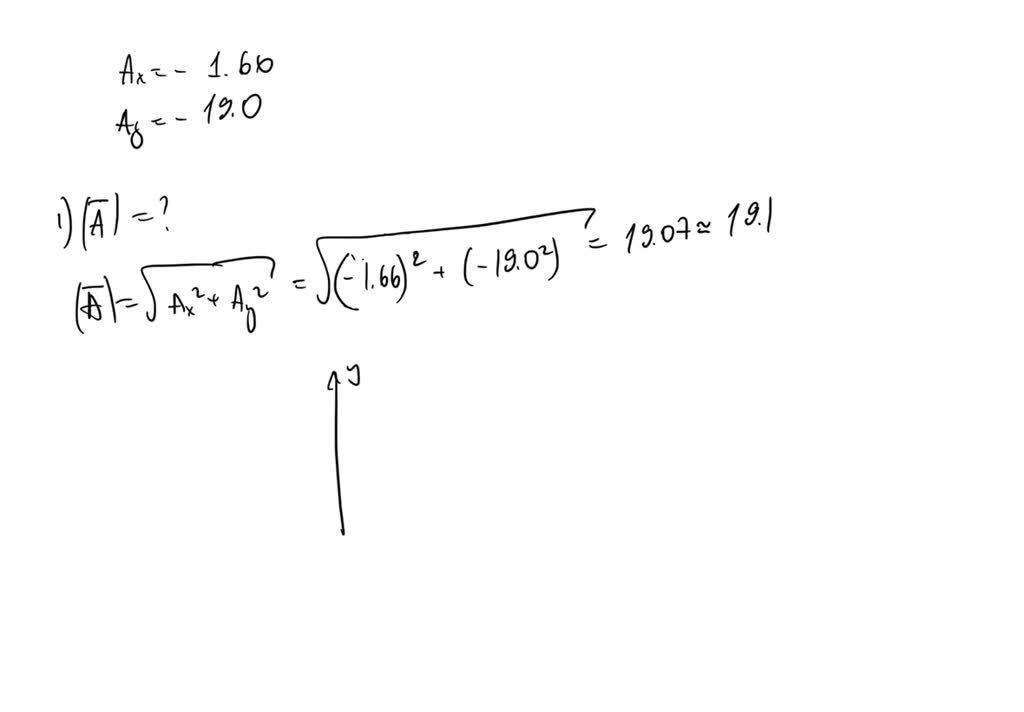 Ax = - 1.66
Ay = - 19.0
1) |A̅| = ?
|A̅| = √(Ax² + Ay²) = √((-1.66)² + (-19.0²)) = 19.07 ≃ 19.1
y